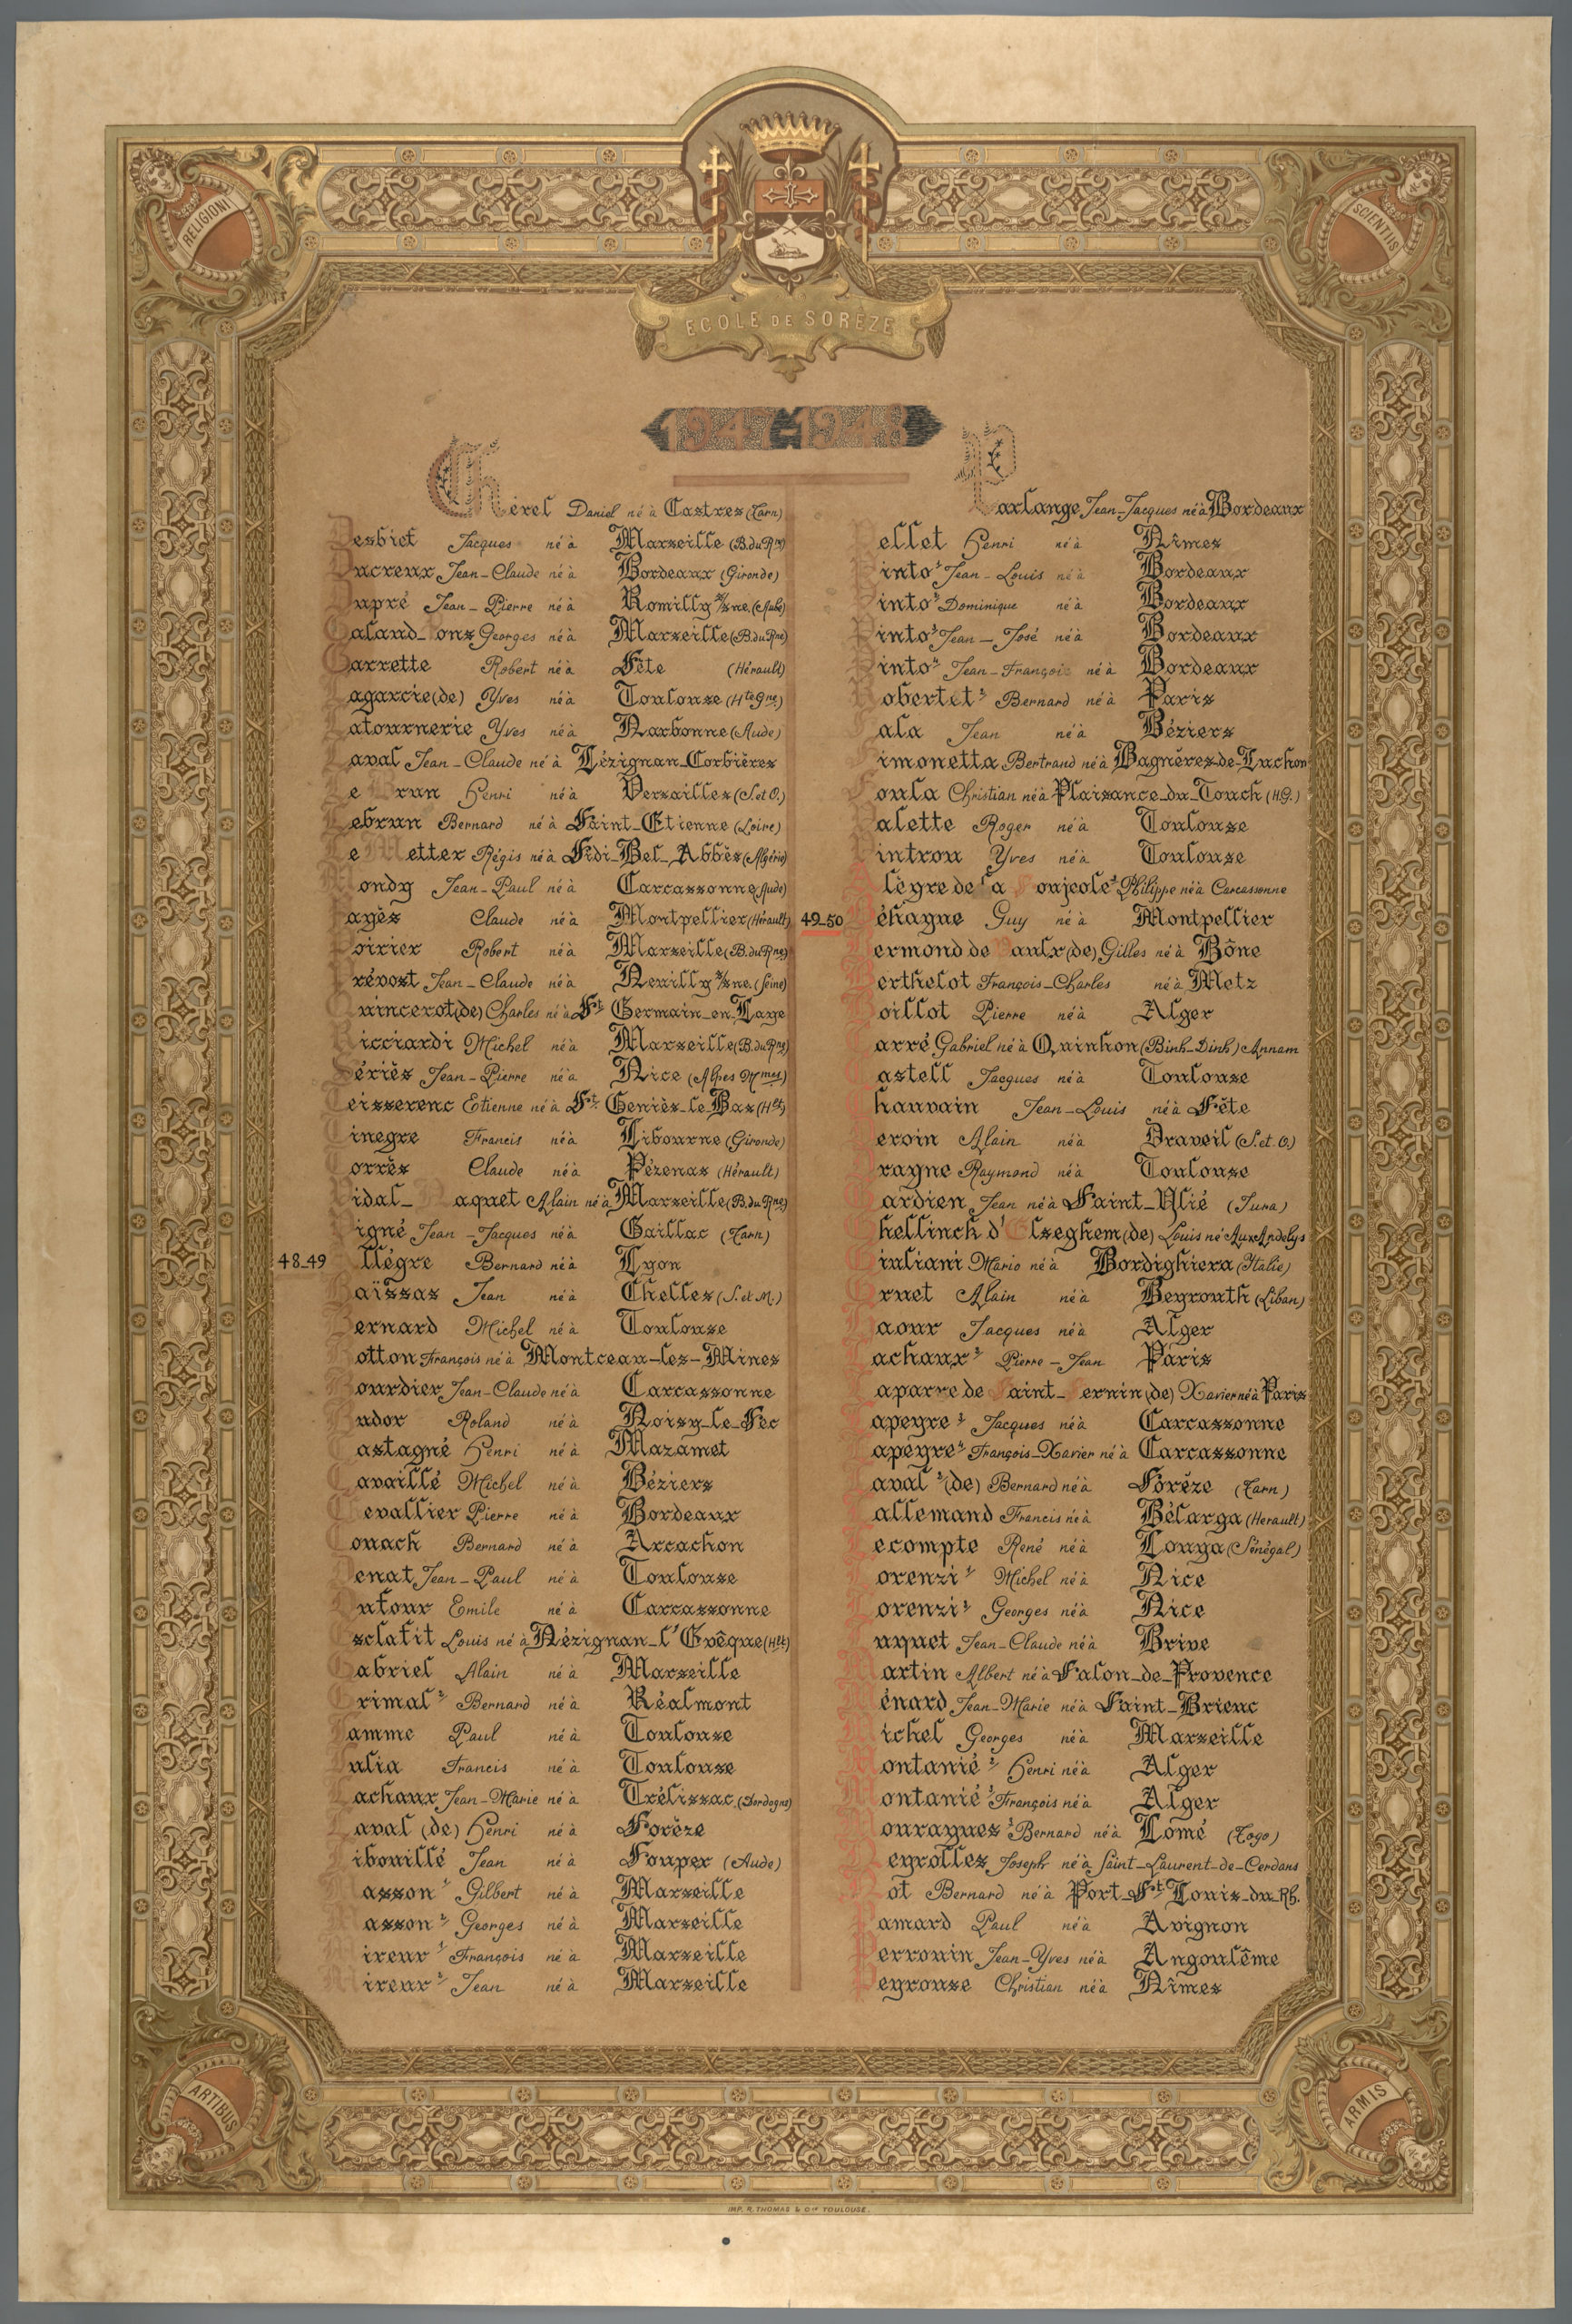 RELIGIONI
SCIENTIIS
ECOLE DE SORÈZE
1947-1948
Chérel Daniel né à Castres (Tarn)
Desbief Jacques né à Marseille (B.du Rne)
Ducreux Jean-Claude né à Bordeaux (Gironde)
Dupré Jean-Pierre né à Romilly s/sne. (Aube)
Galand-Pons Georges né à Marseille (B.du Rne)
Garrette Robert né à Sète (Hérault)
Lagarcie (de) Yves né à Toulouse (Hte Gne)
Latournerie Yves né à Narbonne (Aude)
Laval Jean-Claude né à Lézignan-Corbières
Le Brun Henri né à Versailles (S.et O.)
Lebrun Bernard né à Saint-Etienne (Loire)
Le Metter Régis né à Sidi-Bel-Abbès (Algérie)
Mondy Jean-Paul né à Carcassonne (Aude)
Pagès Claude né à Montpellier (Hérault)
Poirier Robert né à Marseille (B.du Rne)
Prévost Jean-Claude né à Neuilly s/sne. (Seine)
Quincerot (de) Charles né à St Germain-en-Laye
Ricciardi Michel né à Marseille (B.du Rne)
Sériès Jean-Pierre né à Nice (Alpes Mmes)
Teisserenc Etienne né à St Geniès-le-Bas (Hlt)
Tinegre Francis né à Libourne (Gironde)
Torrès Claude né à Pézenas (Hérault)
Vidal-Naquet Alain né à Marseille (B.du Rne)
Vigné Jean-Jacques né à Gaillac (Tarn)
48-49 Allègre Bernard né à Lyon
Baïssas Jean né à Chelles (S.et M.)
Bernard Michel né à Toulouse
Botton François né à Montceau-les-Mines
Bourdier Jean-Claude né à Carcassonne
Budor Roland né à Noisy-le-Sec
Castagné Henri né à Mazamet
Cavaillé Michel né à Béziers
Chevallier Pierre né à Bordeaux
Couach Bernard né à Arcachon
Denat Jean-Paul né à Toulouse
Dufour Emile né à Carcassonne
Esclafit Louis né à Nézignan-l'Evêque (Hlt)
Gabriel Alain né à Marseille
Grimal 2 Bernard né à Réalmont
Jamme Paul né à Toulouse
Julia Francis né à Toulouse
Lachaux Jean-Marie né à Trélissac (Dordogne)
Laval (de) Henri né à Sorèze
Libouillé Jean né à Soupex (Aude)
Masson 1 Gilbert né à Marseille
Masson 2 Georges né à Marseille
Mireur 1 François né à Marseille
Mireur 2 Jean né à Marseille
Parlange Jean-Jacques né à Bordeaux
Pellet Henri né à Nîmes
Pinto 1 Jean-Louis né à Bordeaux
Pinto 2 Dominique né à Bordeaux
Pinto 3 Jean-José né à Bordeaux
Pinto 4 Jean-François né à Bordeaux
Robertet 2 Bernard né à Paris
Sala Jean né à Béziers
Simonetta Bertrand né à Bagnères-de-Luchon
Soula Christian né à Plaisance-du-Touch (H.G.)
Valette Roger né à Toulouse
Vintrou Yves né à Toulouse
Alègre de la Soujeole 2 Philippe né à Carcassonne
49-50 Béhague Guy né à Montpellier
Bermond de Vaulx (de) Gilles né à Bône
Berthelot François-Charles né à Metz
Boillot Pierre né à Alger
Carré Gabriel né à Quinhon (Binh-Dinh) Annam
Castell Jacques né à Toulouse
Chauvain Jean-Louis né à Sète
Deroin Alain né à Draveil (S.et O.)
Drayne Raymond né à Toulouse
Gardien Jean né à Saint-Ylié (Jura)
Ghellinck d'Elseghem (de) Louis né Aux Andelys
Giuliani Mario né à Bordighiera (Italie)
Gruet Alain né à Beyrouth (Liban)
Haour Jacques né à Alger
Lachaux 2 Pierre-Jean Paris
Laparre de Saint-Sernin (de) Xavier né à Paris
Lapeyre 3 Jacques né à Carcassonne
Lapeyre 4 François-Xavier né à Carcassonne
Laval 2 (de) Bernard né à Sorèze (Tarn)
Lallemand Francis né à Bélarga (Herault)
Lecompte René né à Louga (Sénégal)
Lorenzi 1 Michel né à Nice
Lorenzi 2 Georges né à Nice
Luquet Jean-Claude né à Brive
Martin Albert né à Salon-de-Provence
Ménard Jean-Marie né à Saint-Brieuc
Michel Georges né à Marseille
Montanié 2 Henri né à Alger
Montanié 3 François né à Alger
Mouragues 2 Bernard né à Lomé (Togo)
Neyrolles Joseph né à Saint-Laurent-de-Cerdans
Not Bernard né à Port-St Louis-du-Rh.
Pamard Paul né à Avignon
Perrouin Jean-Yves né à Angoulême
Peyrouse Christian né à Nîmes
ARTIBUS
ARMIS
IMP. R. THOMAS & Cie TOULOUSE.